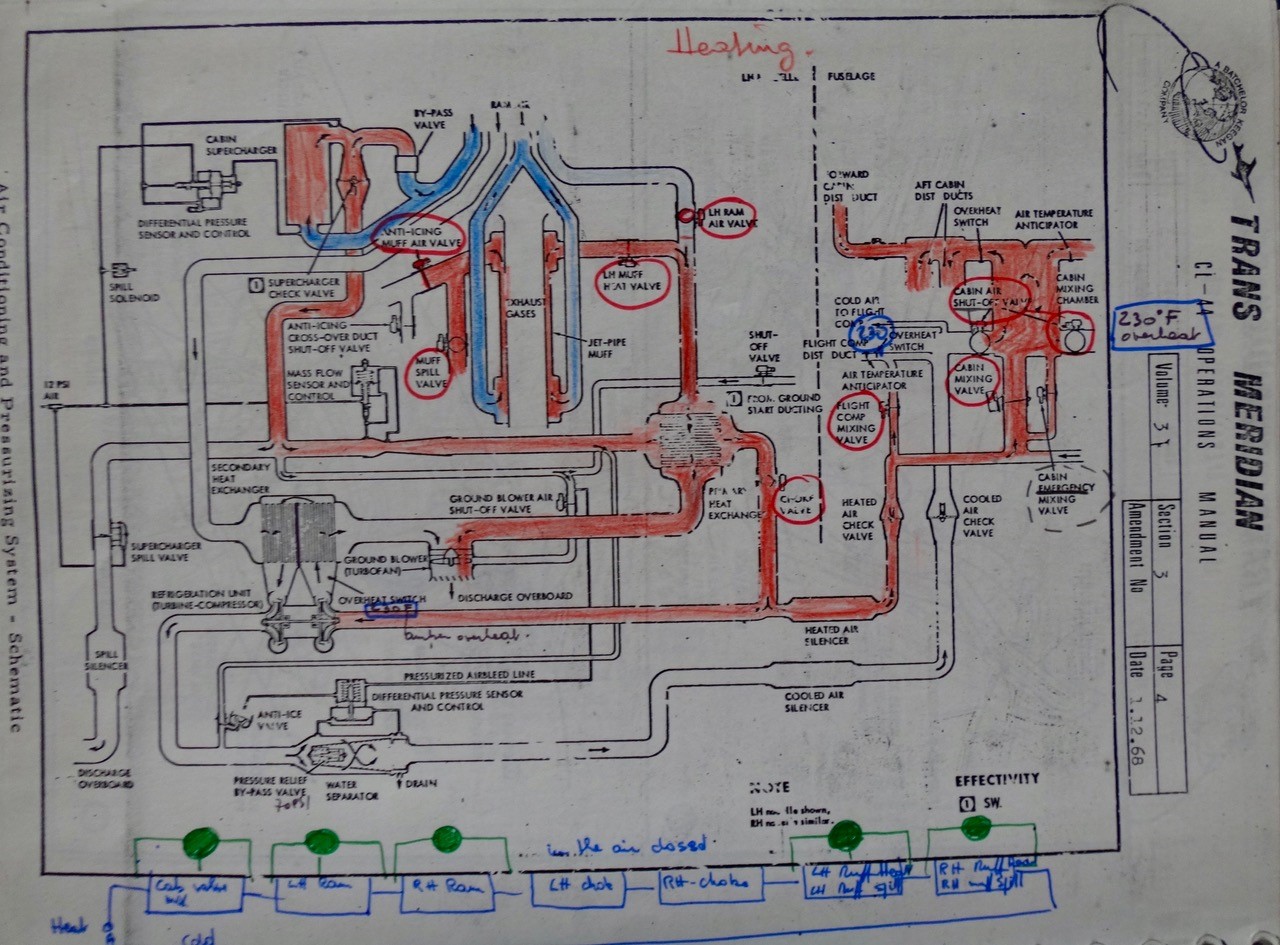 Heating.
FUSELAGE
RAM AIR
BY-PASS
VALVE
CABIN
SUPERCHARGER
DIFFERENTIAL PRESSURE
SENSOR AND CONTROL
ANTI-ICING
MUFF AIR VALVE
LH RAM
AIR VALVE
SPILL
SOLENOID
1 SUPERCHARGER
CHECK VALVE
LH MUFF
HEAT VALVE
EXHAUST
GASES
ANTI-ICING
CROSS-OVER DUCT
SHUT-OFF VALVE
JET-PIPE
MUFF
MUFF
SPILL
VALVE
MASS FLOW
SENSOR AND
CONTROL
12 PSI
AIR
SHUT-
OFF
VALVE
1 FROM GROUND
START DUCTING
FORWARD
CABIN
DIST DUCT
AFT CABIN
DIST DUCTS
OVERHEAT
SWITCH
AIR TEMPERATURE
ANTICIPATOR
CABIN AIR
SHUT-OFF VALVE
CABIN
MIXING
CHAMBER
COLD AIR
TO FLIGHT
230
OVERHEAT
SWITCH
FLIGHT COMP
DIST DUCT
AIR TEMPERATURE
ANTICIPATOR
CABIN
MIXING
VALVE
FLIGHT
COMP
MIXING
VALVE
230°F
overheat
SECONDARY
HEAT
EXCHANGER
GROUND BLOWER AIR
SHUT-OFF VALVE
PRIMARY
HEAT
EXCHANGER
CHOKE
VALVE
HEATED
AIR
CHECK
VALVE
COOLED
AIR
CHECK
VALVE
CABIN
EMERGENCY
MIXING
VALVE
SUPERCHARGER
SPILL VALVE
GROUND BLOWER
(TURBOFAN)
DISCHARGE OVERBOARD
REFRIGERATION UNIT
(TURBINE-COMPRESSOR)
OVERHEAT SWITCH
overheat.
HEATED AIR
SILENCER
SPILL
SILENCER
PRESSURIZED AIRBLEED LINE
DIFFERENTIAL PRESSURE SENSOR
AND CONTROL
COOLED AIR
SILENCER
ANTI-ICE
VALVE
DISCHARGE
OVERBOARD
PRESSURE RELIEF
BY-PASS VALVE
70PSI
WATER
SEPARATOR
DRAIN
NOTE
LH nacelle shown,
RH nacelle similar.
EFFECTIVITY
1 SW.
in the air closed.
Cab valve
LH Ram
RH Ram
LH chok
RH-choke
LH Muff Heat
LH Muff Spill
RH Muff Heat
RH muff Spill
Heat
Cold
Air Conditioning and Pressurizing System - Schematic
A BATCHELOR KEEGAN
COMPANY
TRANS MERIDIAN
CL-44 OPERATIONS MANUAL
Volume: 3
Section 3
Page 4
Amendment No
Date 1.12.68